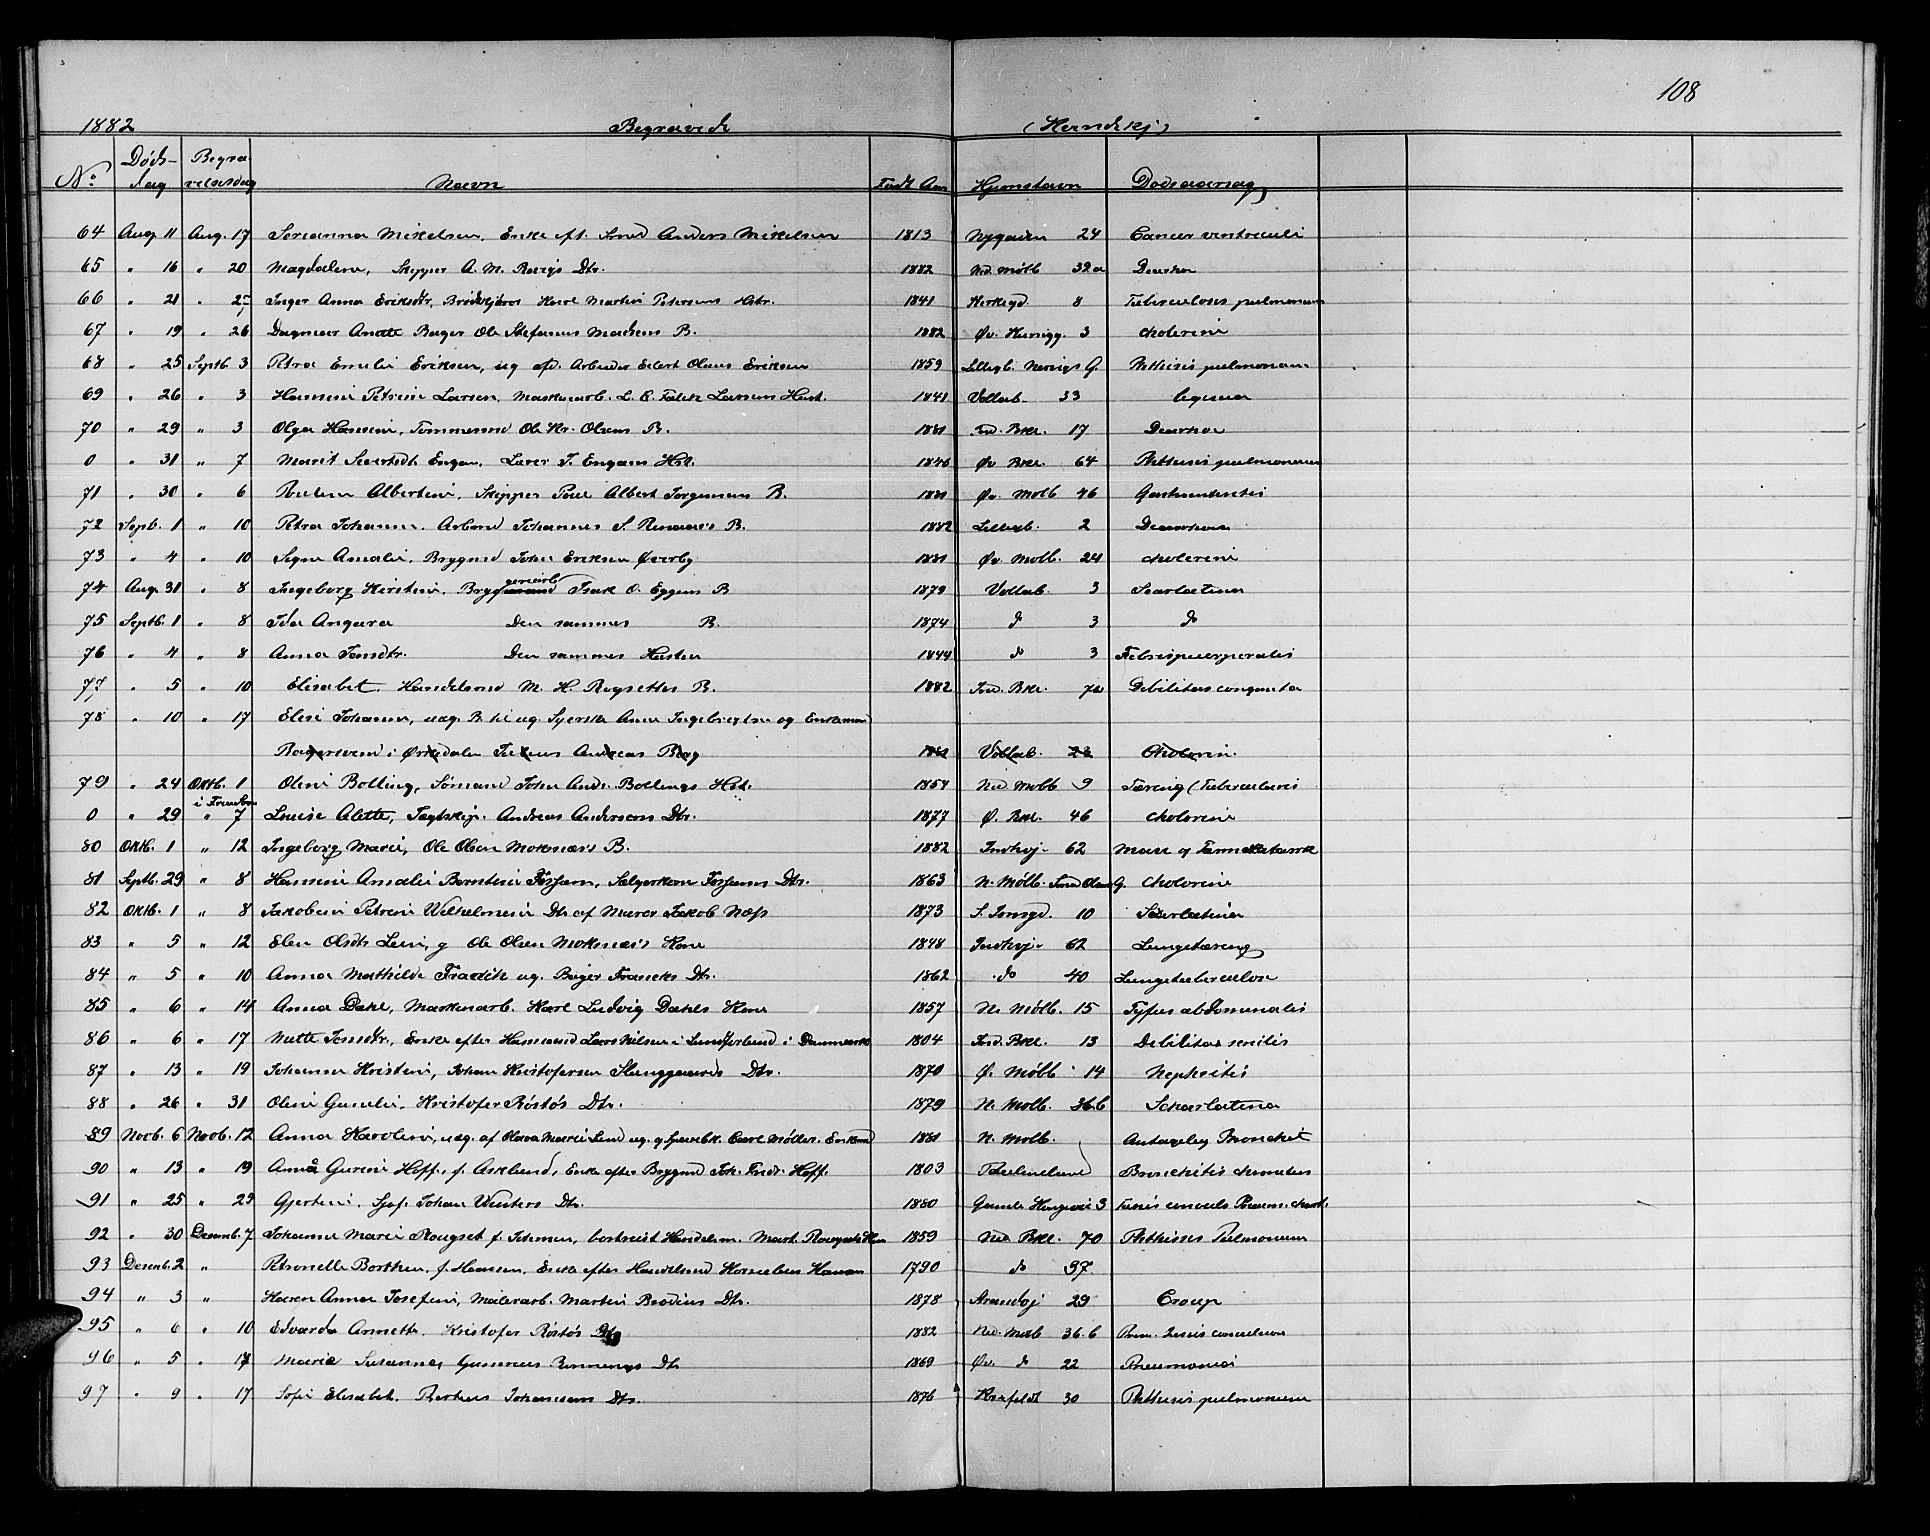 108
1882 Begravede (Kvindekj)
No Døds-dag Begra-velsesdag Navn Født Aar Hjemstavn Dødsaarsag
64 Aug. 11 Aug. 17 Serianna Mikelsen, Enke eft. Smed Anders Mikelsen 1813 Nygaden 24 Cancer ventriculi
65 " 16 " 20 Magdalene, Skipper A. M. Dtr. 1882 Ned. Mølb 39a Diarrhoe
66 " 21 " 25 Inger Anna Eriksdtr, Karl Martin Petersens Hstr. 1841 Kirkegd. 8 Tuberculosis pulmonum
67 " 19 " 26 Dagmar Anette Bager Ole Stefanus Madsens B. 1882 Øv. 3 cholerine
68 " 25 Septb. 3 Petra Emilie Eriksen, ug afd. Arbeider Edert Olaus Eriksen 1859 Lillegb. G. Phthisis pulmonum
69 " 26 " 3 Hansine Petrine Larsen, Maskinarb. L. C. Falck Larsens Hust. 1841 Vollab. 33 ligesaa
70 " 29 " 3 Olga Hansine, Tømmermd Ole Kr. Olsens B. 1881 Ind. Bkl. 17 Diarrhoe
0 " 31 " 7 Marit Sivertsdtr Engan, Lærer T. Engans Hst. 1846 Øv Bkl. 64 Phthisis pulmonum
71 " 30 " 6 Albertine, Skipper Albert Jørgensens B. 1881 Øv. Molb 46 Gastroenteritis
72 Sepb. 1 " 10 Petra Johanne, Arbmd Johannes S. B. 1882 Lillegb. 2 Diarrhoe
73 " 4 " 10 Signe Amalie, Brygmd Johs Eriksen Øverby 1881 Øv. Molb. 24 cholerine
74 Aug. 31 " 8 Ingeborg Kirstine, Isak O. Eggens B 1879 Vollab. 3 Scarlatina
75 Septb. 1 " 8 Ida Angara Den sammes B. 1874 do 3 do
76 " 4 " 8 Anna Jonsdtr. Den sammes Hustru 1844 do 3 Febris puerperalis
77 " 5 " 10 Elisabet, Handelsmd M. H. Rogsettes B. 1882 Ind. Bkl. 70 Debilitas congenita
78 " 10 " 17 Elise Johanne, uæg. B. til ug Syerske Anne Ingebrigtsen og Enkemand
i Ørkedalen Andreas Berg 1882 Vollab. 23 Cholerin.
79 " 24 Oktb. 1 Oline Bolling, Sømand Johan Andr. Bollings Hst. 1854 Ned Molb 9 Tæring (Tuberculosis
0 " 29 " 7 Louise Alette, Jagtskip. Andreas Andersens Dtr. 1877 Ø. Bkl. 46 cholerine
80 Oktb. 1 " 12 Ingeborg Marie, Ole Olsen Moknæs's B. 1882 62 Mave og Tarmkatarrh
81 Septb. 29 " 8 Hansine Amalie Berntine Fossum, Fossums Dtr. 1863 N. Mølb. G. cholerine
82 Oktb. 1 " 8 Jakobine Petrine Wilhelmine Dtr af Murer Jakob Næss 1873 S. Jonsgd. 10 Scarlatina
83 " 5 " 12 Elen Olsdtr g Ole Olsen Moknæs's Kone 1848 62 Lungetæring
84 " 5 " 10 Anna Mathilde ug. Bager Francks Dtr. 1862 do 40 Lungetuberculose
85 " 6 " 14 Anna Dahl, Maskinarb. Karl Ludvig Dahls Kone 1857 N. Mølb. 15 Tyfus abdominalis
86 " 6 " 17 Mette Jensdtr, Enke efter Husmand Lars Nilsen i i Danmark 1804 Ind. Bkl. 13 Debilitas senilis
87 " 13 " 19 Johanna Kristine, Johan Kristofersen Stenggaards Dtr. 1870 Ø. Mølb 14 Nephritis
88 " 26 " 31 Oline Gunelie, Kristofer Røstø's Dtr. 1879 N. Molb. 36.b Scharlatina
89 Novb. 6 Novb. 12 Anna Karoline, uæg. af Olava Marie Lund ug. og Carl Møller Enkemd 1881 N. Molb. Bronchit
90 " 13 " 19 Anna Gurine Hoff, f. Asklund, Enke efter Brygmd Joh. Fredr. Hoff. 1803 Bronchitis
91 " 25 " 29 Gjertine, Sjøf. Johan Winters Dtr. 1880 Gamle 3
92 " 30 Desemb. 7 Johanne Marie Rougset f. bortreist Handelsm. Mart. Rougsets Kone 1859 Ned. Bkl. 70 Phthisis Pulmonum
93 Desemb. 2 " Petronelle Borthen, f. Hansen, Enke efter Handelsmd Kornelius Hansen 1790 do 97.
94 " 3 " Karen Anna Josefine, Malerarb. Martin Brodins Dtr. 1878 29 Croup
95 " 6 " 10 Edvarda Annette, Kristofer Røstø's Dtr 1882 Ned. Molb 36.b
96 " 5 " 17 Marie Susanna, Gunnnus Dtr 1869 Øv. do 22 Pneumonie
97 " 9 " 17 Sofie Elisabet, Johansens Dtr. 1876 30 Phthisis pulmonum